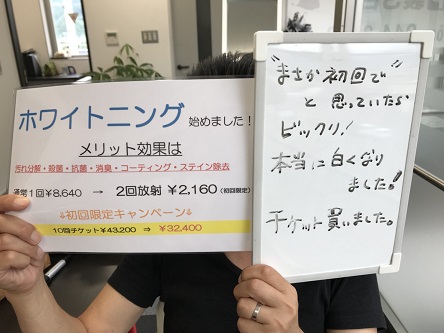 ホワイトニング 始めました！
メリット効果は
汚れ分解・殺菌・抗菌・消臭・コーティング・ステイン除去
通常1回¥8,640 → 2回放射 ¥2,160（初回限定）
↓初回限定キャンペーン↓
10回チケット¥43,200 ⇒ ¥32,400
"まさか初回で"
と思っていたら
ビックリ！
本当に白くなり
ました！
チケット買いました。